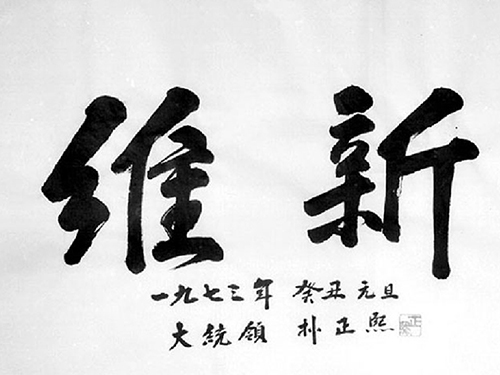 維新
一九七三年 癸丑 元旦
大統領 朴正熙